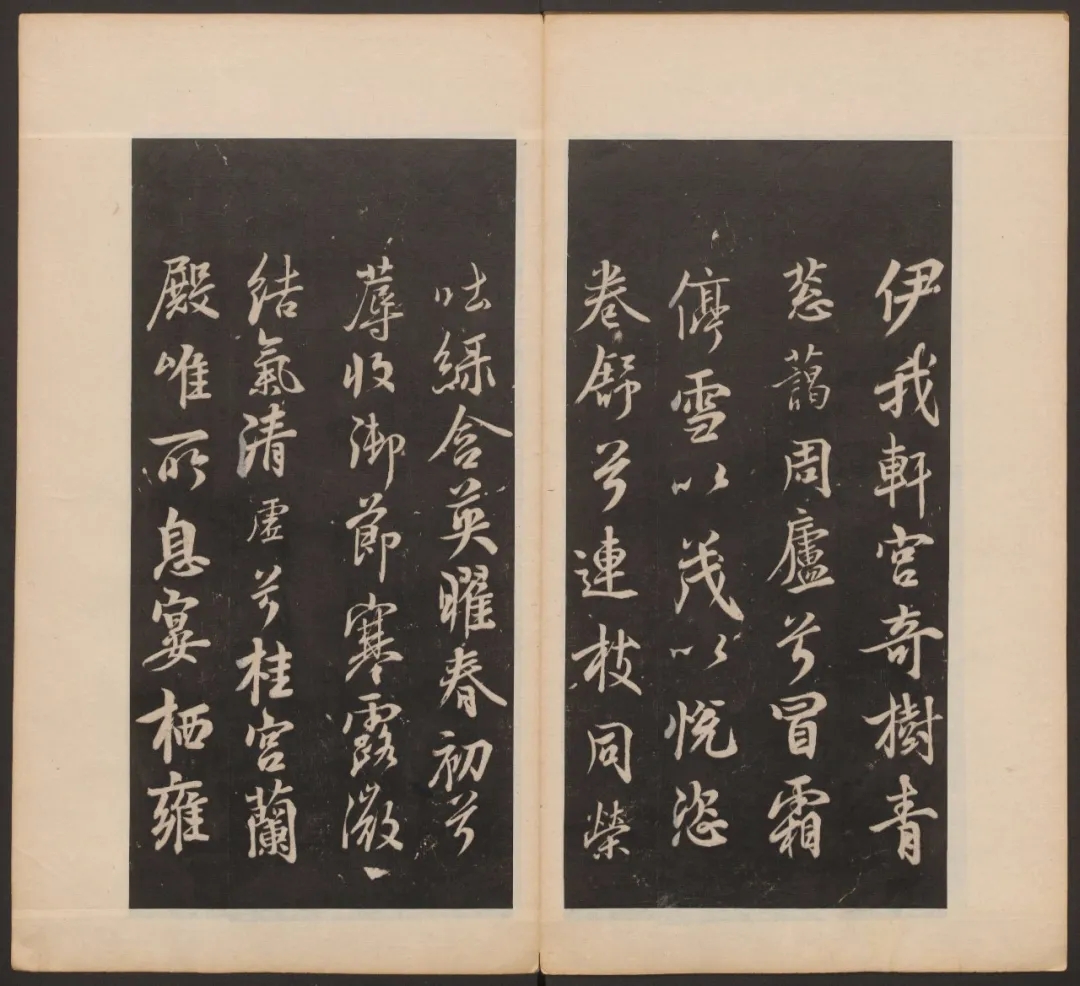 伊我軒宮奇樹青
蔥藹周廬兮冒霜
停雪以茂以悅恣
卷舒兮連枝同榮
吐綠含英曜春初兮
蓐收御節寒露微〻
結氣清虛兮桂宮蘭
殿唯所息宴栖雍